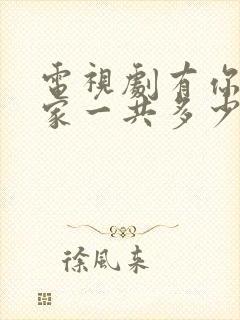 電視劇有你
家一共多少
徐風來